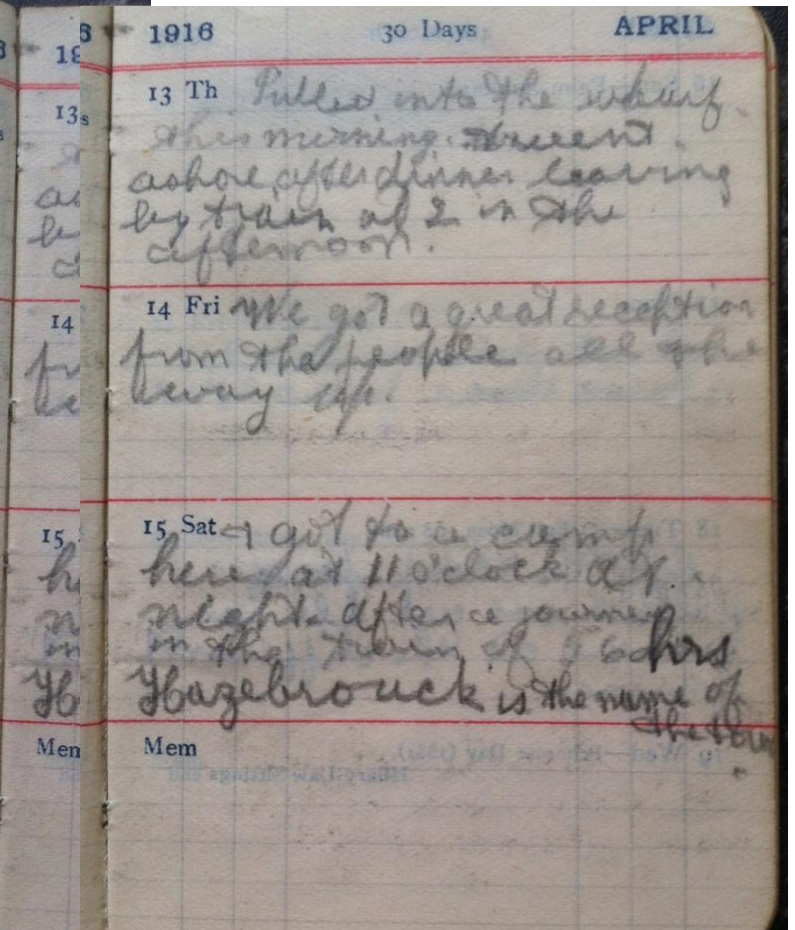 1916 30 Days APRIL
13 Th Pulled into the wharf
this morning & went
ashore after dinner leaving
by train at 2 in the
afternoon.
14 Fri We got a great reception
from the people all the
way up.
15 Sat I got to a camp
here at 11 o'clock at
night after a journey
in the train of 56 hrs
Hazebrouck is the name of
the town
Mem